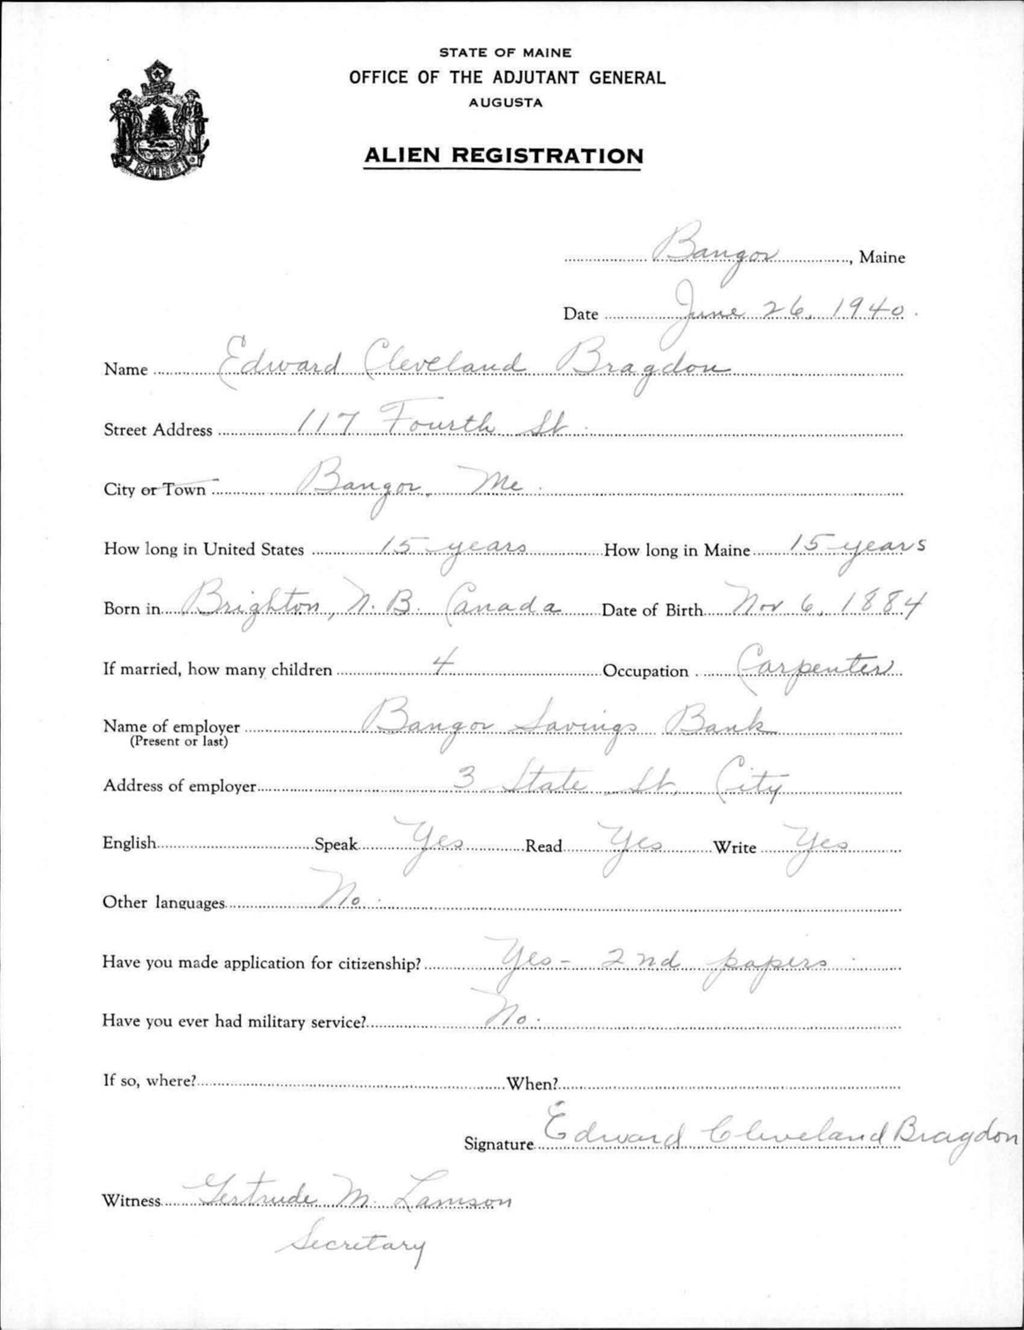 STATE OF MAINE
OFFICE OF THE ADJUTANT GENERAL
AUGUSTA
ALIEN REGISTRATION
MAINE
Bangor, Maine
Date June 26, 1940.
Name Edward Cleveland Bragdon
Street Address 117 Fourth St.
City or Town Bangor, Me.
How long in United States 15 years How long in Maine 15 years
Born in Brighton, N.B. Canada Date of Birth Nov 6, 1884
If married, how many children 4 Occupation Carpenter
Name of employer Bangor Savings Bank
(Present or last)
Address of employer 3 State St. City
English Speak Yes Read Yes Write Yes
Other languages No.
Have you made application for citizenship? Yes - 2nd papers.
Have you ever had military service? No.
If so, where? When?
Signature Edward Cleveland Bragdon
Witness Gertrude M. Lamson
Secretary